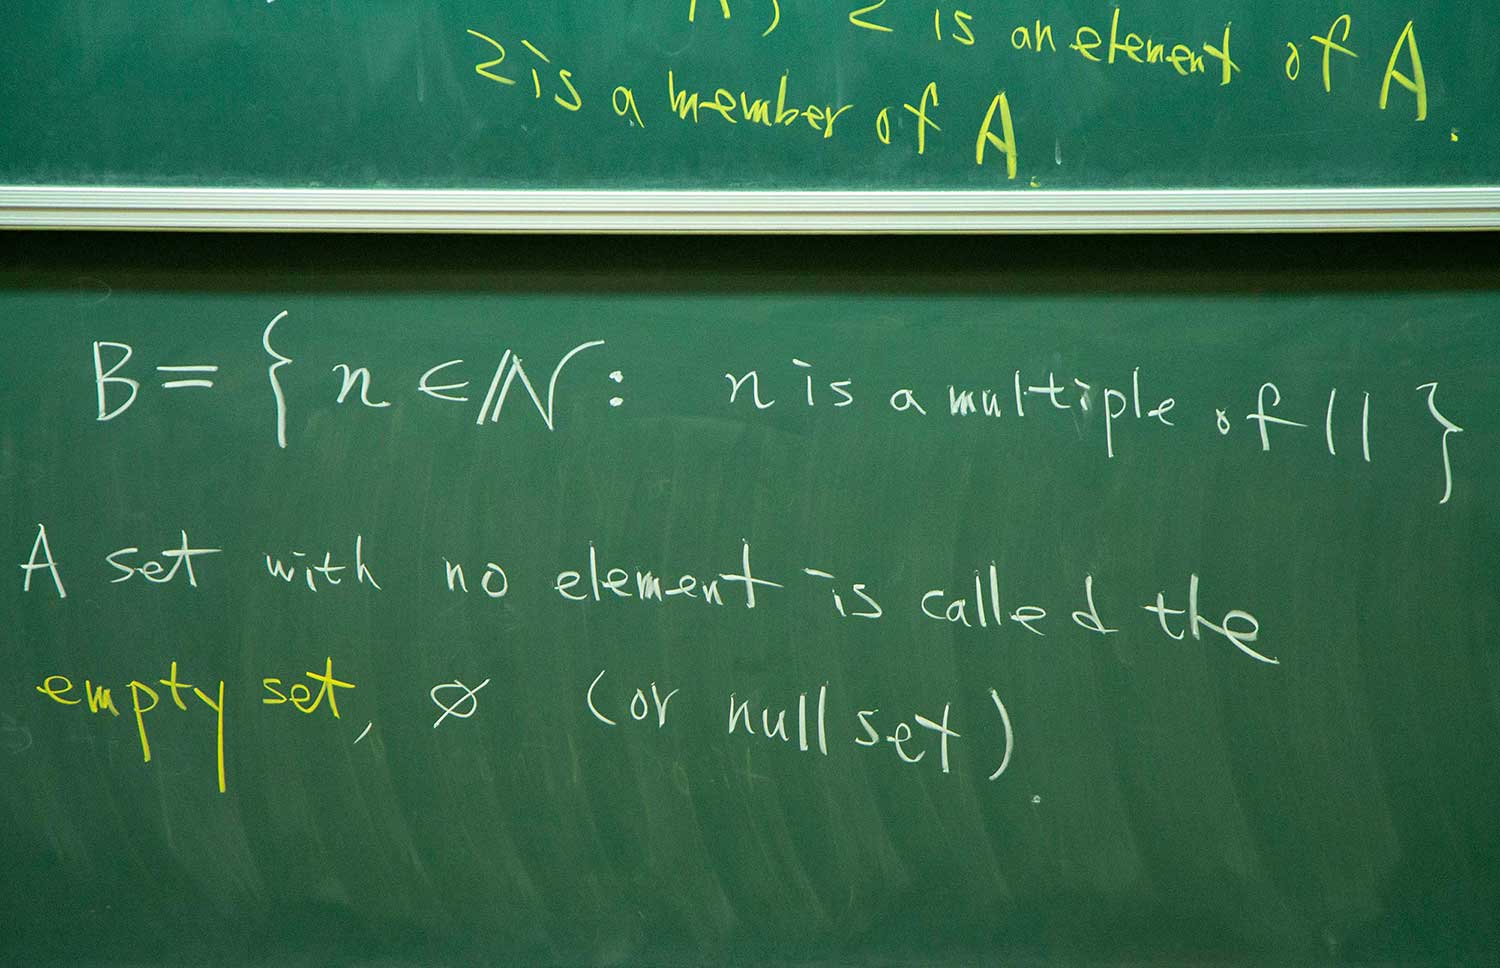 2 is an element of A.
2 is a member of A.
B = { n ∈ ℕ : n is a multiple of 11 }
A set with no element is called the
empty set, ∅ (or null set).